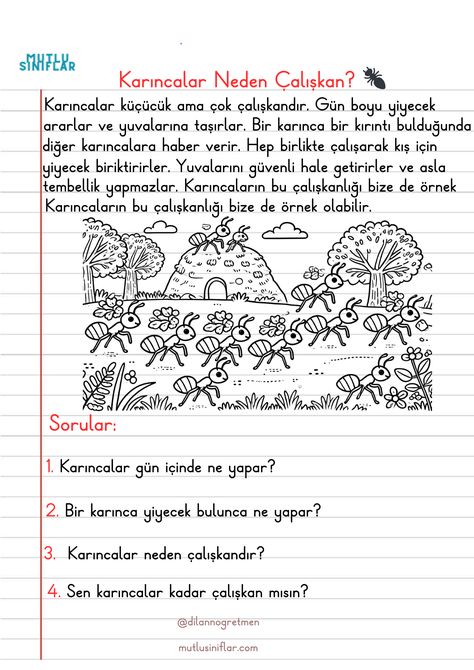 MUTLU
SINIFLAR
Karıncalar Neden Çalışkan?
Karıncalar küçücük ama çok çalışkandır. Gün boyu yiyecek
ararlar ve yuvalarına taşırlar. Bir karınca bir kırıntı bulduğunda
diğer karıncalara haber verir. Hep birlikte çalışarak kış için
yiyecek biriktirirler. Yuvalarını güvenli hale getirirler ve asla
tembellik yapmazlar. Karıncaların bu çalışkanlığı bize de örnek
Karıncaların bu çalışkanlığı bize de örnek olabilir.
Sorular:
1. Karıncalar gün içinde ne yapar?
2. Bir karınca yiyecek bulunca ne yapar?
3. Karıncalar neden çalışkandır?
4. Sen karıncalar kadar çalışkan mısın?
@dilannogretmen
mutlusiniflar.com